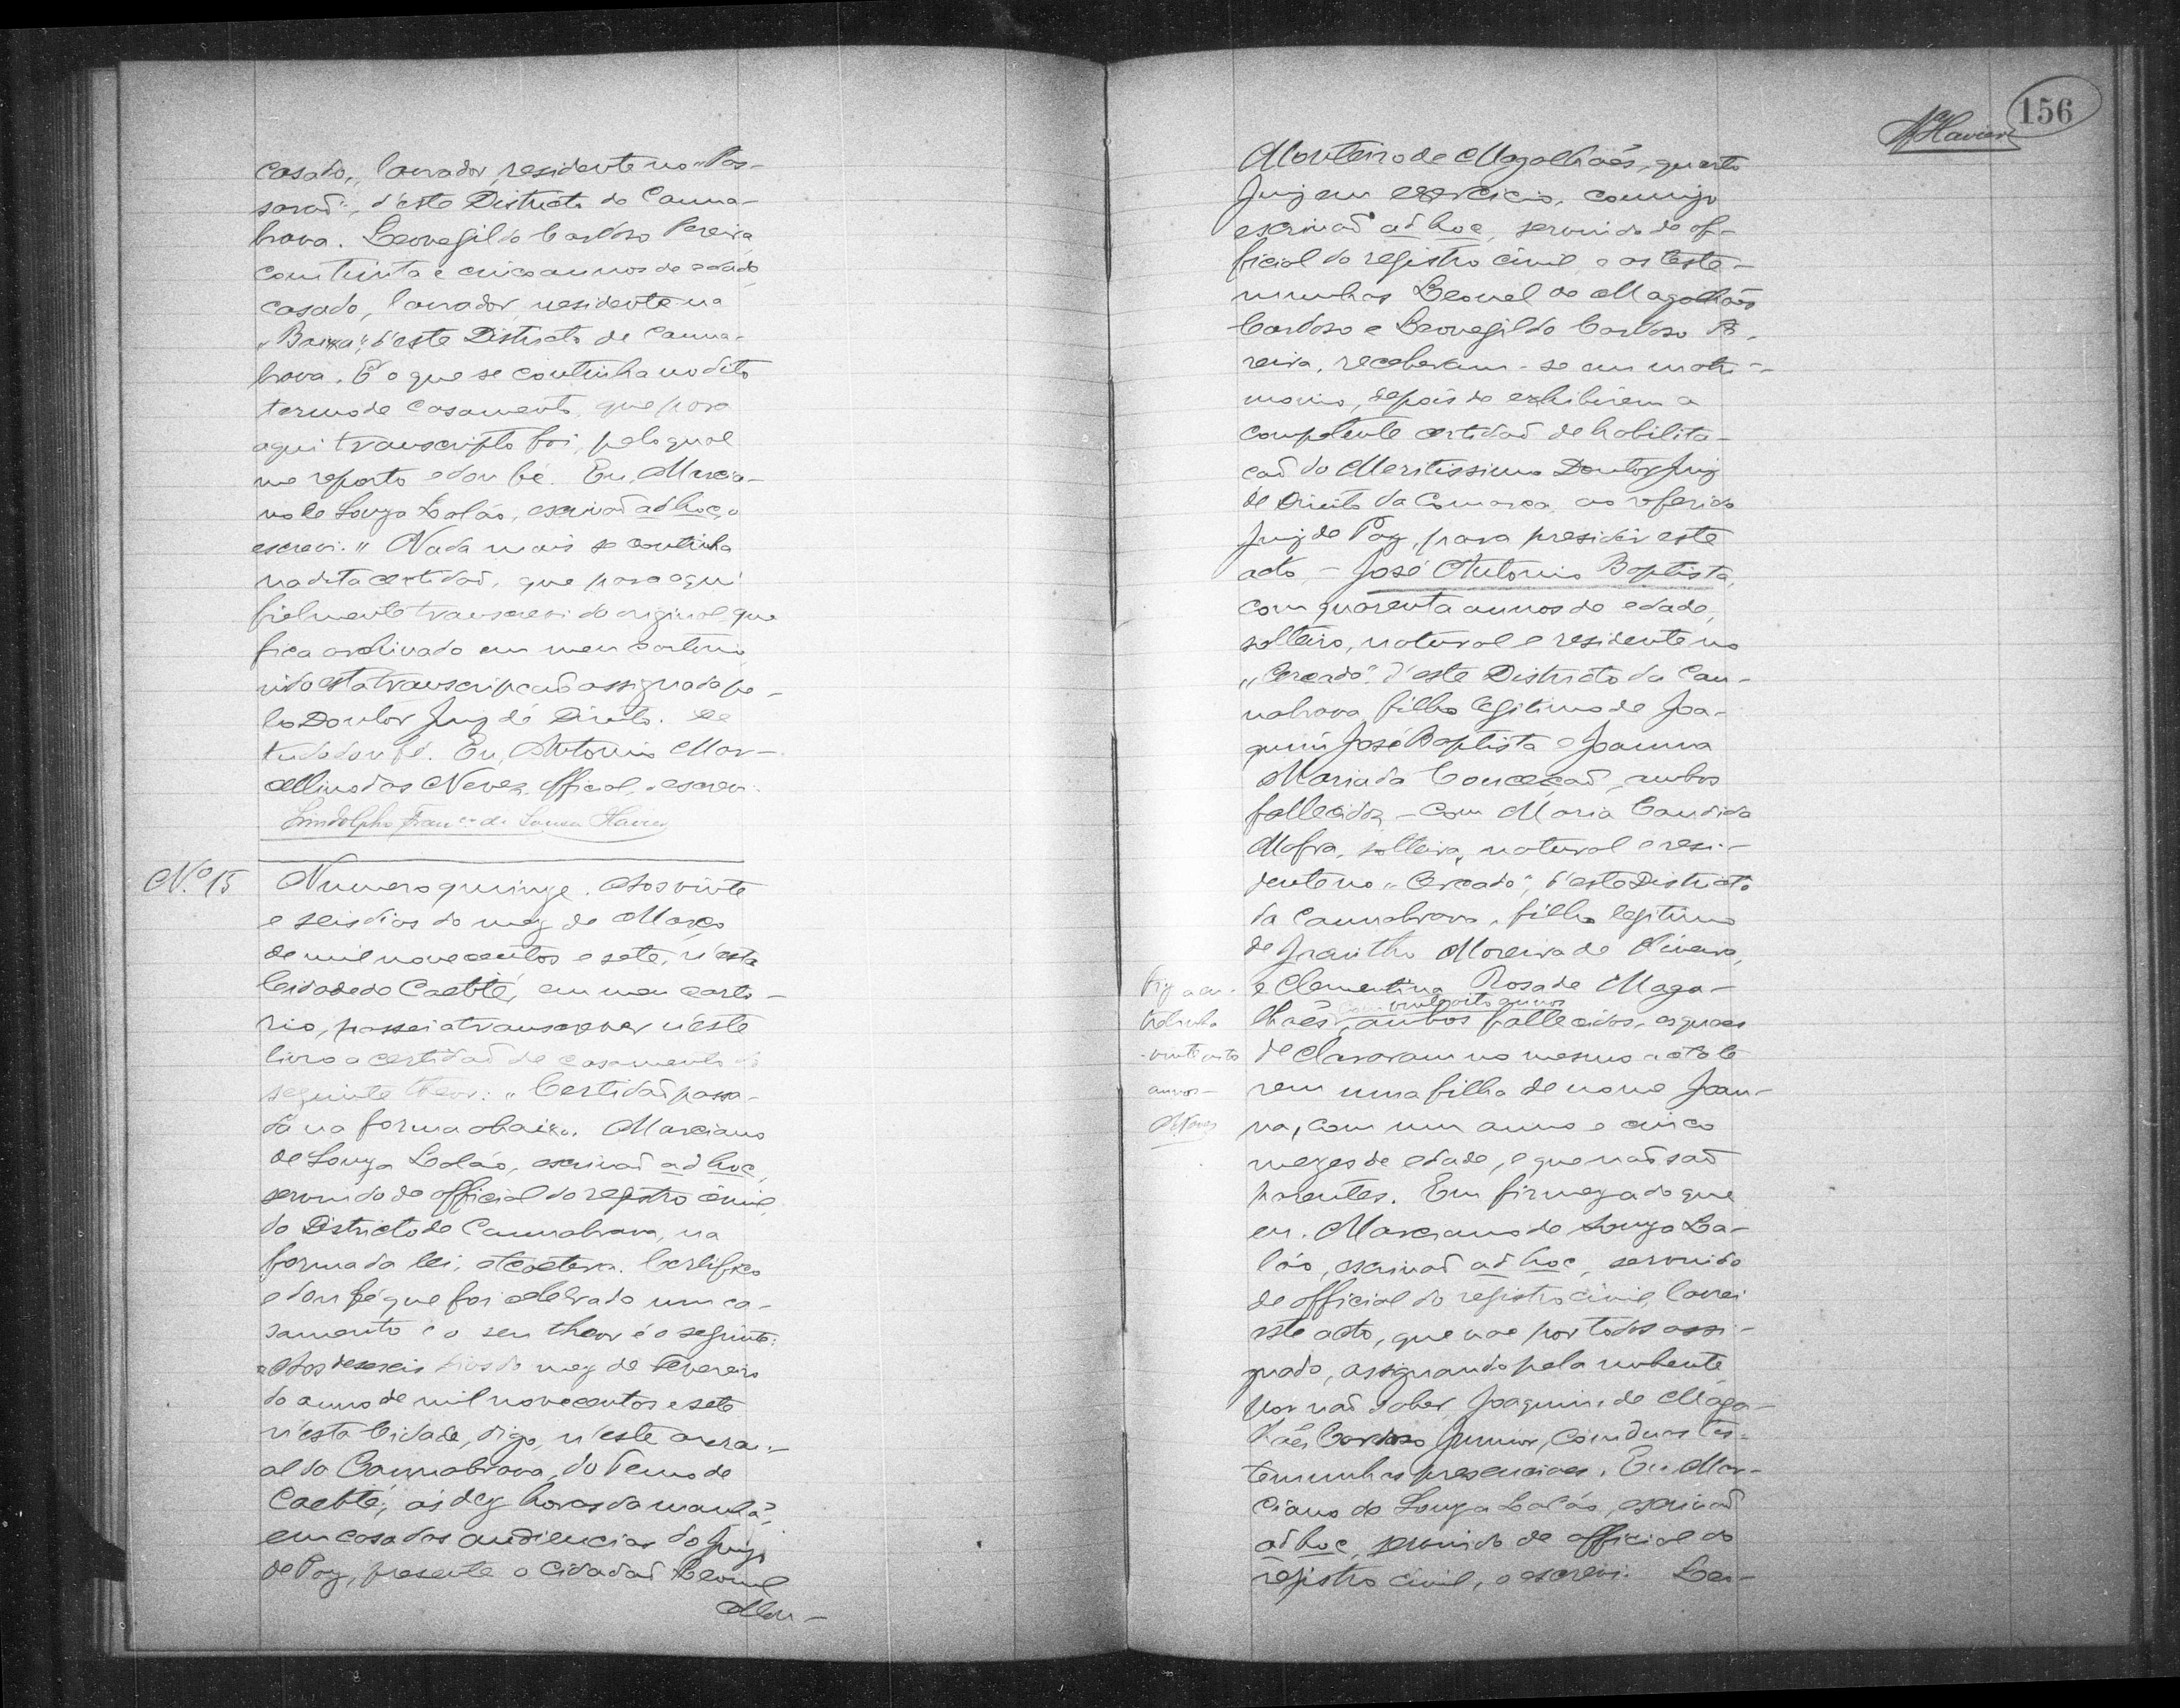 casado, lavrador, residente no "Pas-
sarão", d'este Districto de Canna-
brava. Leovegildo Cardoso Pereira,
com trinta e cinco annos de edade,
casado, lavrador, residente na
"Baixa", d'este Districto de Canna-
brava. É o que se continha no dito
termo de casamento, que para
aqui transcripto foi, pelo qual
me reporto e dou fé. Eu, Marcia-
no de Souza Balão, escrivaõ ad hoc, o
escrevi." Nada mais se continha
na dita certidaõ, que para aqui
fielmente transcrevi do original, que
fica archivado em meu cartorio,
indo esta transcripçaõ assignada pe-
lo Doutor Juiz de Direito. De
tudo dou fé. Eu, Antonio Mar-
cellino das Neves, official, o escrevi.
Lindolpho Franco de Souza
N.º 15
Numero quinze. Aos vinte
e seis dias do mez de Março
de mil novecentos e sete, n'esta
Cidade do Caetité, em meu carto-
rio, passei a transcrever n'este
livro a certidaõ de casamento do
seguinte theor: "Certidaõ passa-
da na forma abaixo. Marciano
de Souza Balão, escrivaõ ad hoc,
servindo de official do registro civil
do Districto de Cannabrava, na
forma da lei, etcoetera. Certifico
e dou fé que foi celebrado um ca-
samento e o seu theor é o seguinte:
"Aos deseseis dias do mez de Fevereiro
do anno de mil novecentos e sete
n'esta Cidade, digo, n'este arrai-
al da Cannabrava, do Termo de
Caetité, ás dez horas da manhã,
em casa das audiencias do Juizo
de Paz, presente o Cidadaõ Leonel
Mon-
156
Monteiro de Magalhães, quarto
Juiz em exercicio, commigo
escrivaõ ad hoc, servindo de of-
ficial do registro civil e as teste-
munhas Leonel de Magalhães
Cardoso e Leovegildo Cardoso Pe-
reira, receberam-se em matri-
monio, depois de exhibirem a
competente certidaõ de habilita-
çaõ do Meritissimo Doutor Juiz
de Direito da Comarca, ao referido
Juiz de Paz, para presidir este
acto, - José Antonio Baptista,
com quarenta annos de edade,
solteiro, natural e residente no
"Cercado", d'este Districto da Can-
nabrava, filho legitimo de Joa-
quim José Baptista e Joanna
Maria da Conceiçaõ, ambos
fallecidos, - com Maria Candida
Mafra, solteira, natural e resi-
dente no "Cercado", d'este Districto
da Cannabrava, filha legitima
de Jacintho Moreira de Oliveira,
e Clementina Rosa de Maga-
com vinte oito annos
lhães, ambos fallecidos, os quaes
declararam no mesmo acto te-
rem uma filha de nome Joan-
na, com um anno e cinco
mezes de edade, e que naõ saõ
parentes. Em firmeza do que
eu, Marciano de Souza Ba-
lão, escrivaõ ad hoc, servindo
de official do registro civil, lavrei
este acto, que vae por todos assi-
gnado, assignando pela nubente,
por naõ saber, Joaquim de Maga-
lhães Cardoso Junior, com duas tes-
temunhas presenciaes. Eu Mar-
ciano de Souza Balão, escrivaõ
ad hoc, servindo de official do
registro civil, o escrevi. Leo-
Diz a en-
trelinha
vinte oito
annos-